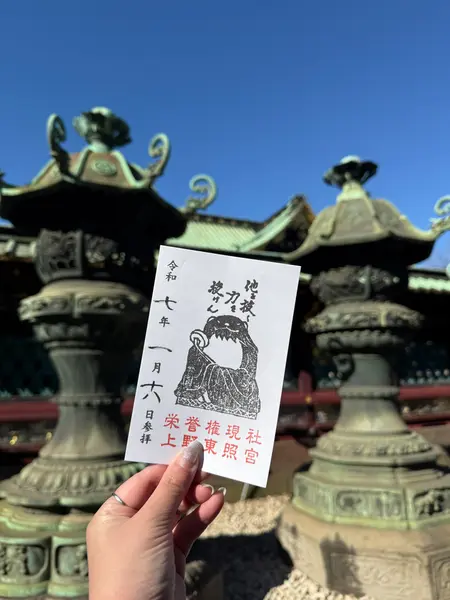 他を抜く
力を
授けん
令和七年一月六日参拝
栄誉権現社
上野東照宮